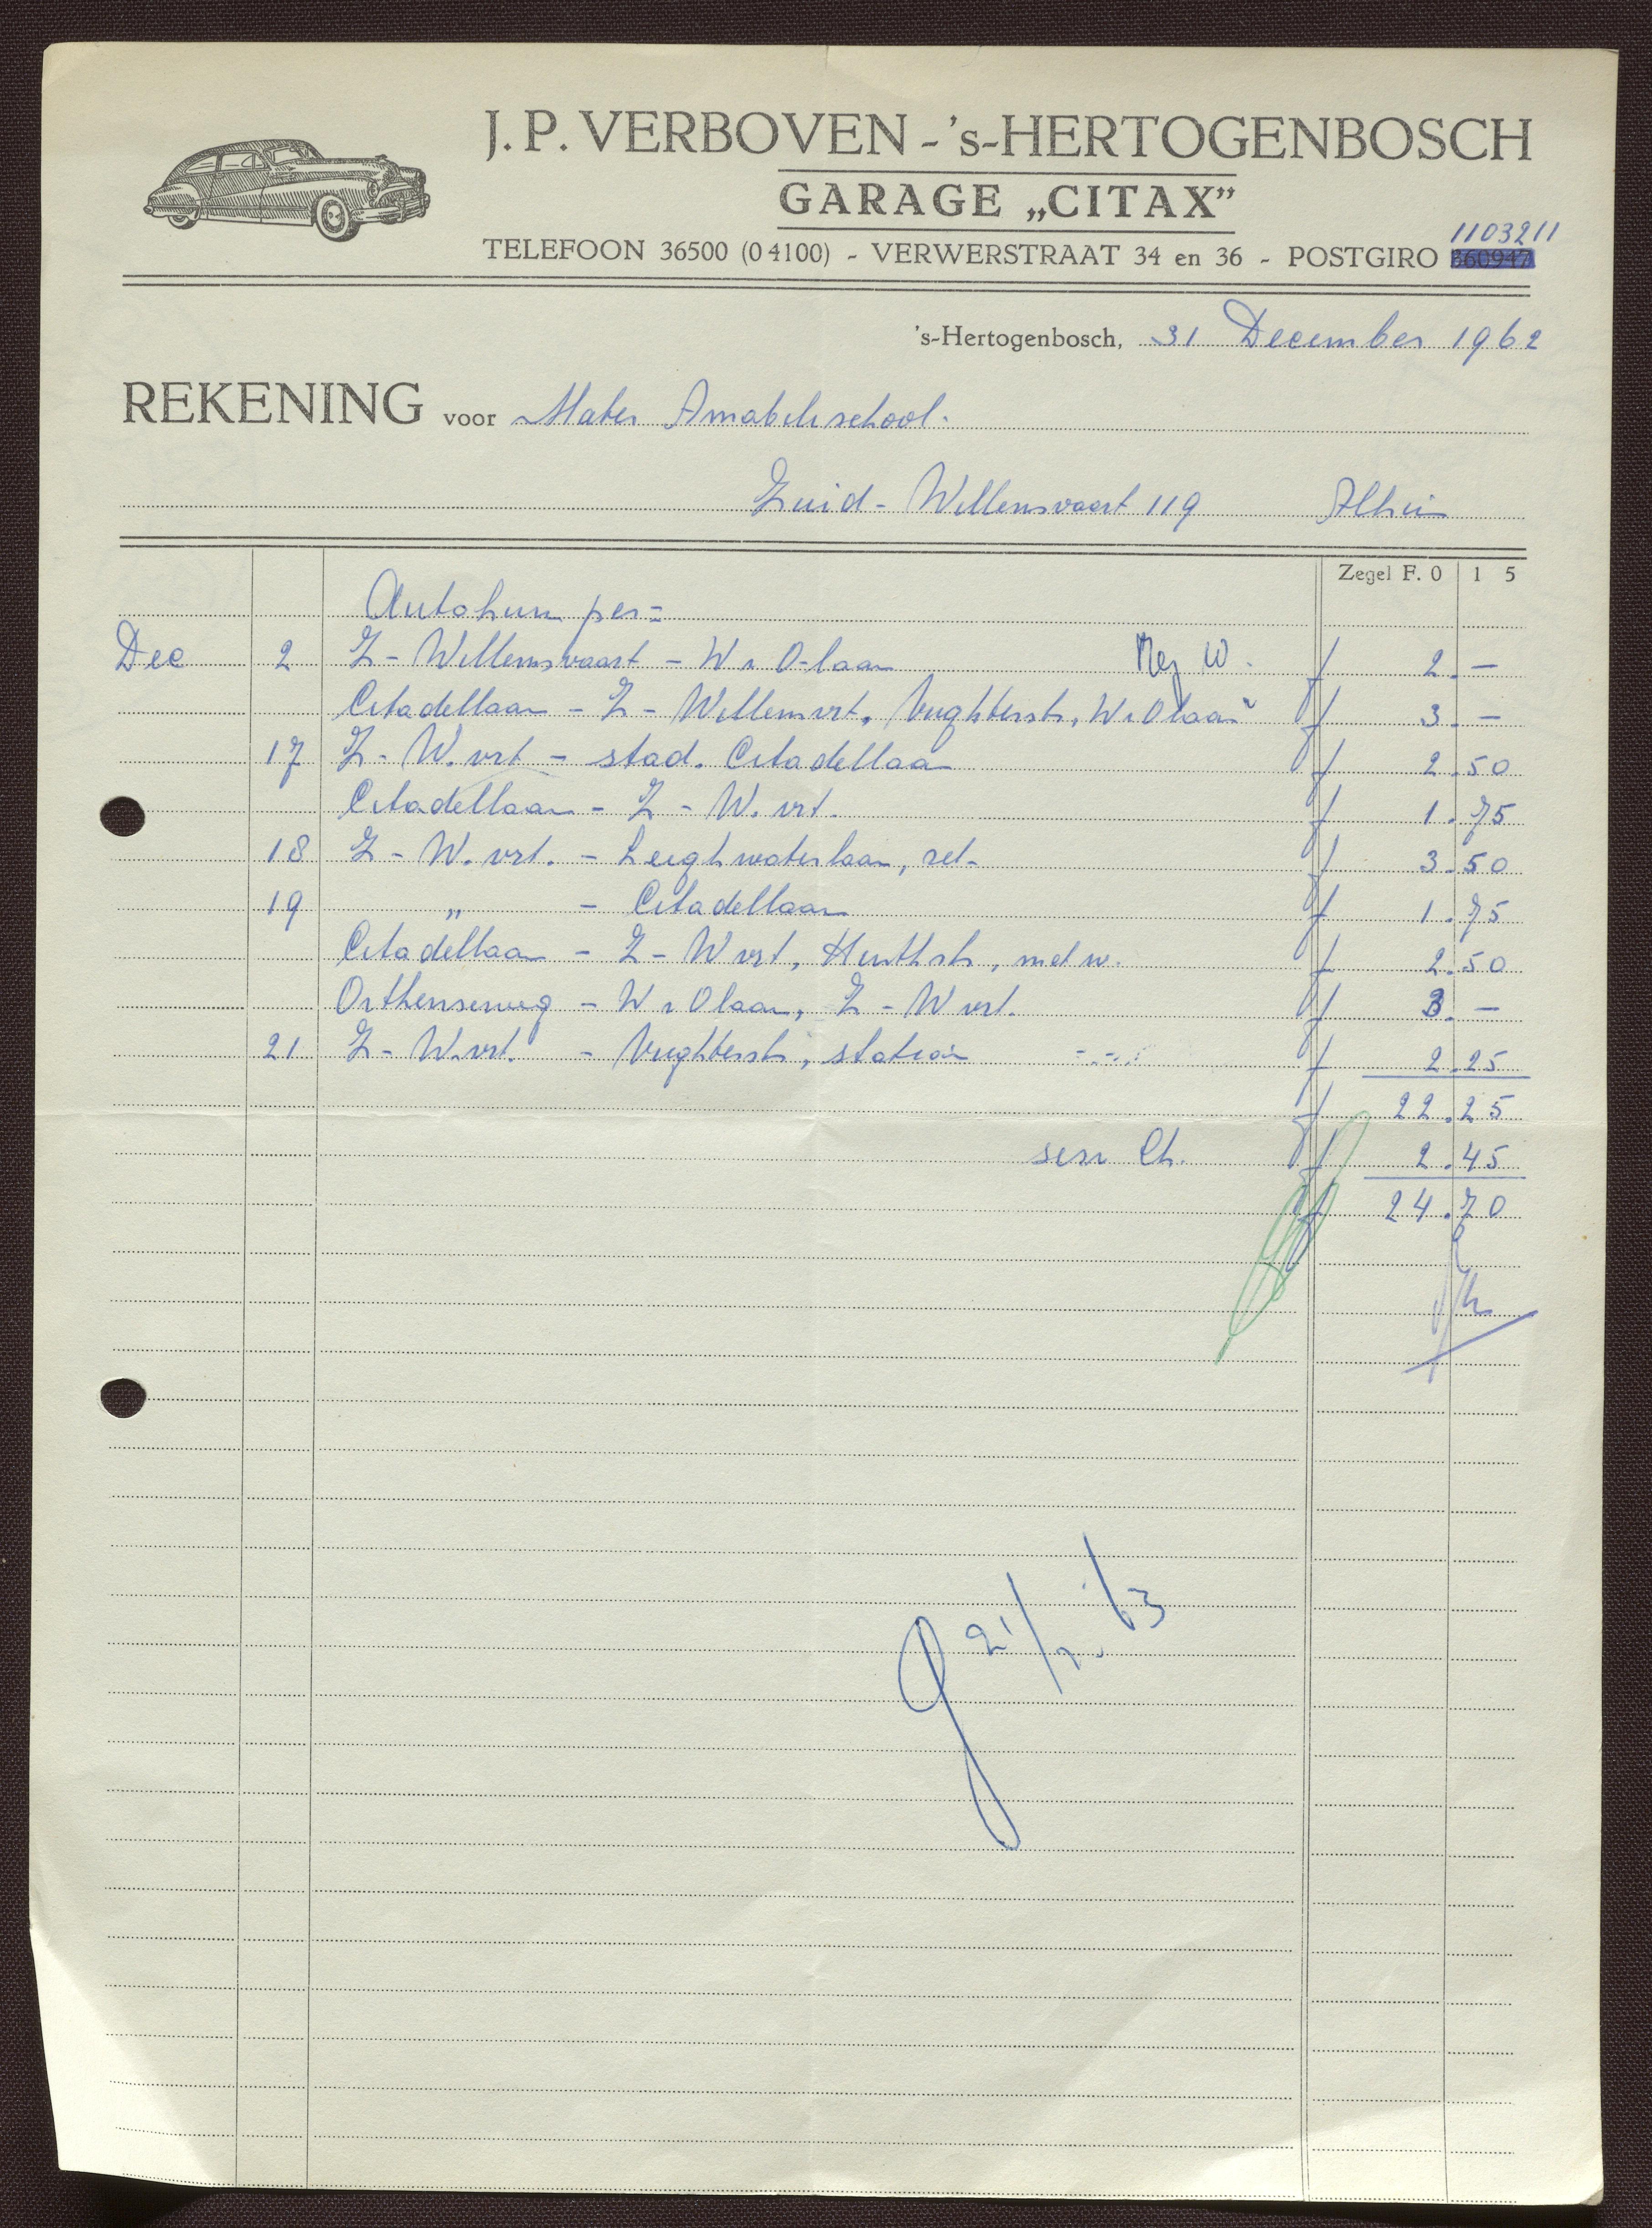 J. P. VERBOVEN - 's-HERTOGENBOSCH
GARAGE „CITAX”
TELEFOON 36500 (0 4100) - VERWERSTRAAT 34 en 36 - POSTGIRO 360947
1103211
's-Hertogenbosch, 31 December 1962
REKENING voor Mater Amabilisschool.
Zuid-Willemsvaart 119 Alhier
Zegel F. 0 15
Autohuur per =
Dec 2 Z-Willemsvaart - W v O-laan f 2.-
Citadellaan - Z-Willemsvrt, Vughterstr, W v O laan f 3.-
17 Z-W.vrt - stad. Citadellaan f 2.50
Citadellaan - Z-W.vrt. f 1.75
18 Z-W.vrt. - Leeghwaterlaan, ret. f 3.50
19 „ - Citadellaan f 1.75
Citadellaan - Z-W vrt, Hinthstr, met w. f 2.50
Orthenseweg - W v O laan, Z-W vrt. f 3.-
21 Z-W.vrt. - Vughterstr, station f 2.25
f 22.25
serv Ch. f 2.45
f 24.70